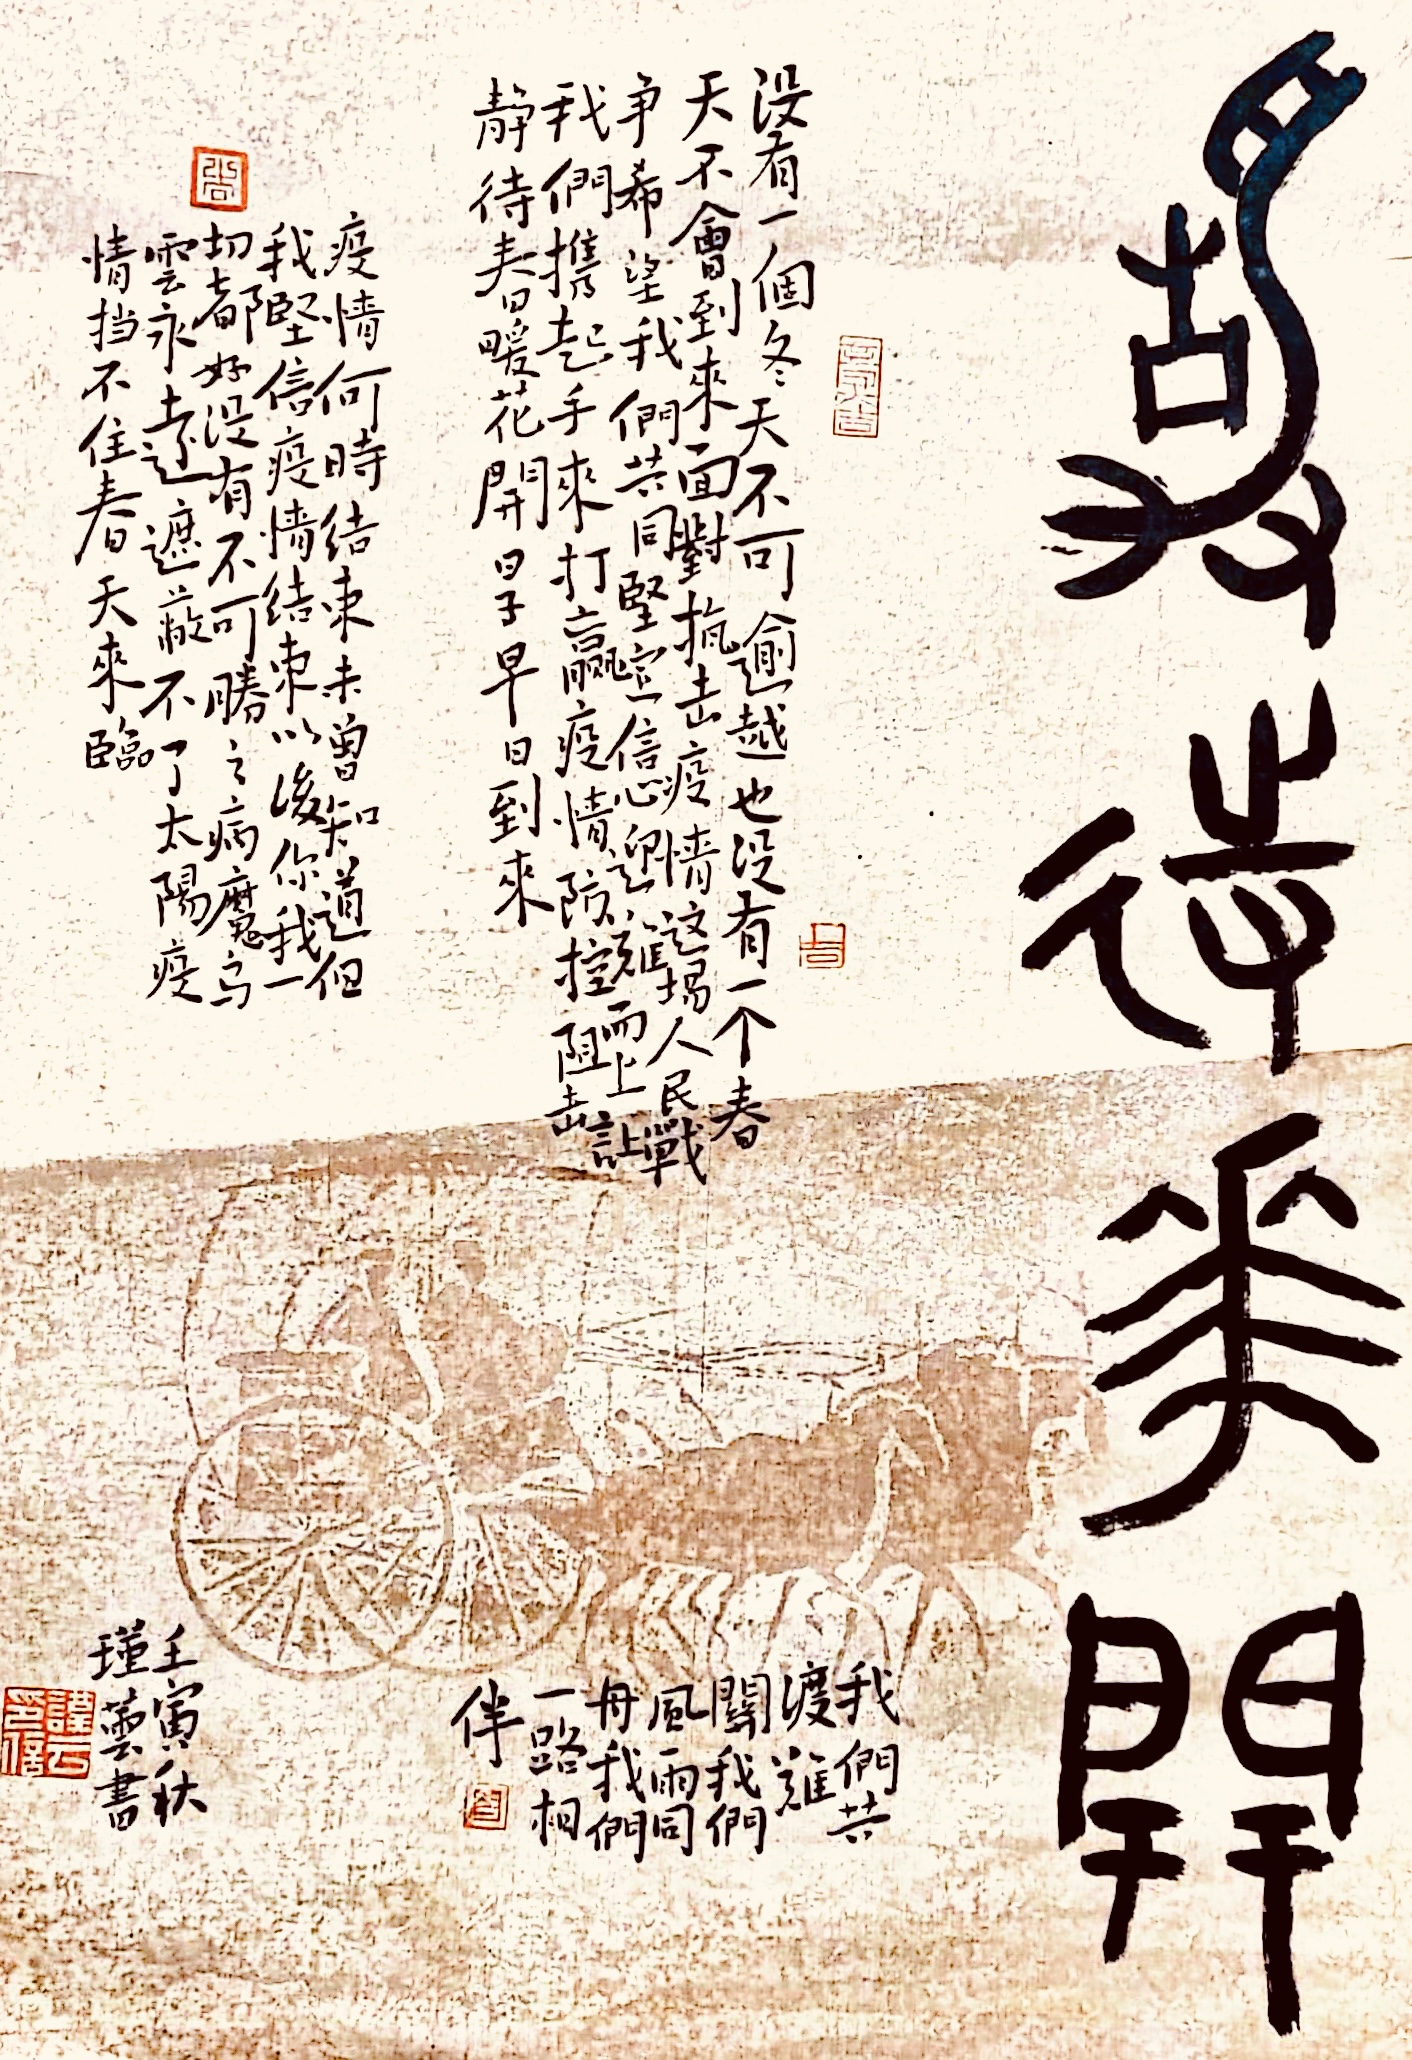 静待花開
没有一個冬天不可逾越也没有一个春
天不會到來面對抗击疫情这場人民戰
争希望我們共同堅定信心迎難而上让
我們携起手來打贏疫情防控阻击
静待春暖花開日子早日到來
疫情何時结束未曾知道但
我堅信疫情结束以後你我一
切都好没有不可勝之病魔乌
雲永遠遮蔽不了太陽疫
情挡不住春天來臨
我們共
渡難
關我們
風雨同
舟我們
一路相
伴
壬寅秋
瑾蕓書